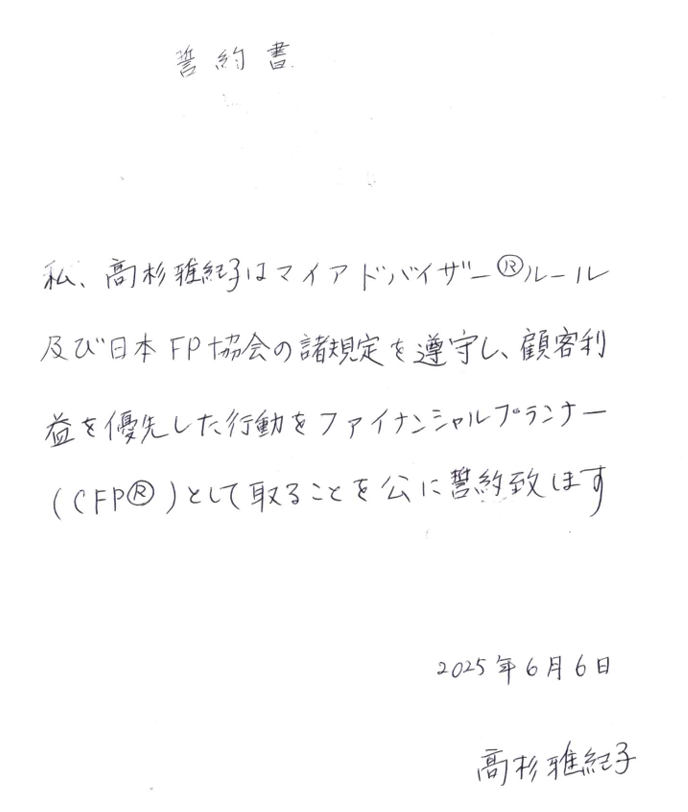 誓約書
私、高杉雅紀子はマイアドバイザー®ルール
及び日本FP協会の諸規定を遵守し、顧客利
益を優先した行動をファイナンシャルプランナー
(CFP®)として取ることを公に誓約致します
2025年6月6日
高杉雅紀子